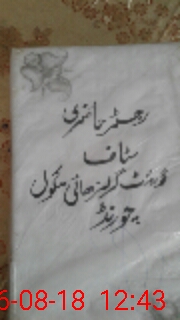 رجسٹر حاضری
سٹاف
گورنمنٹ گرلز ہائی سکول
چورنڈ
6-08-18 12:43